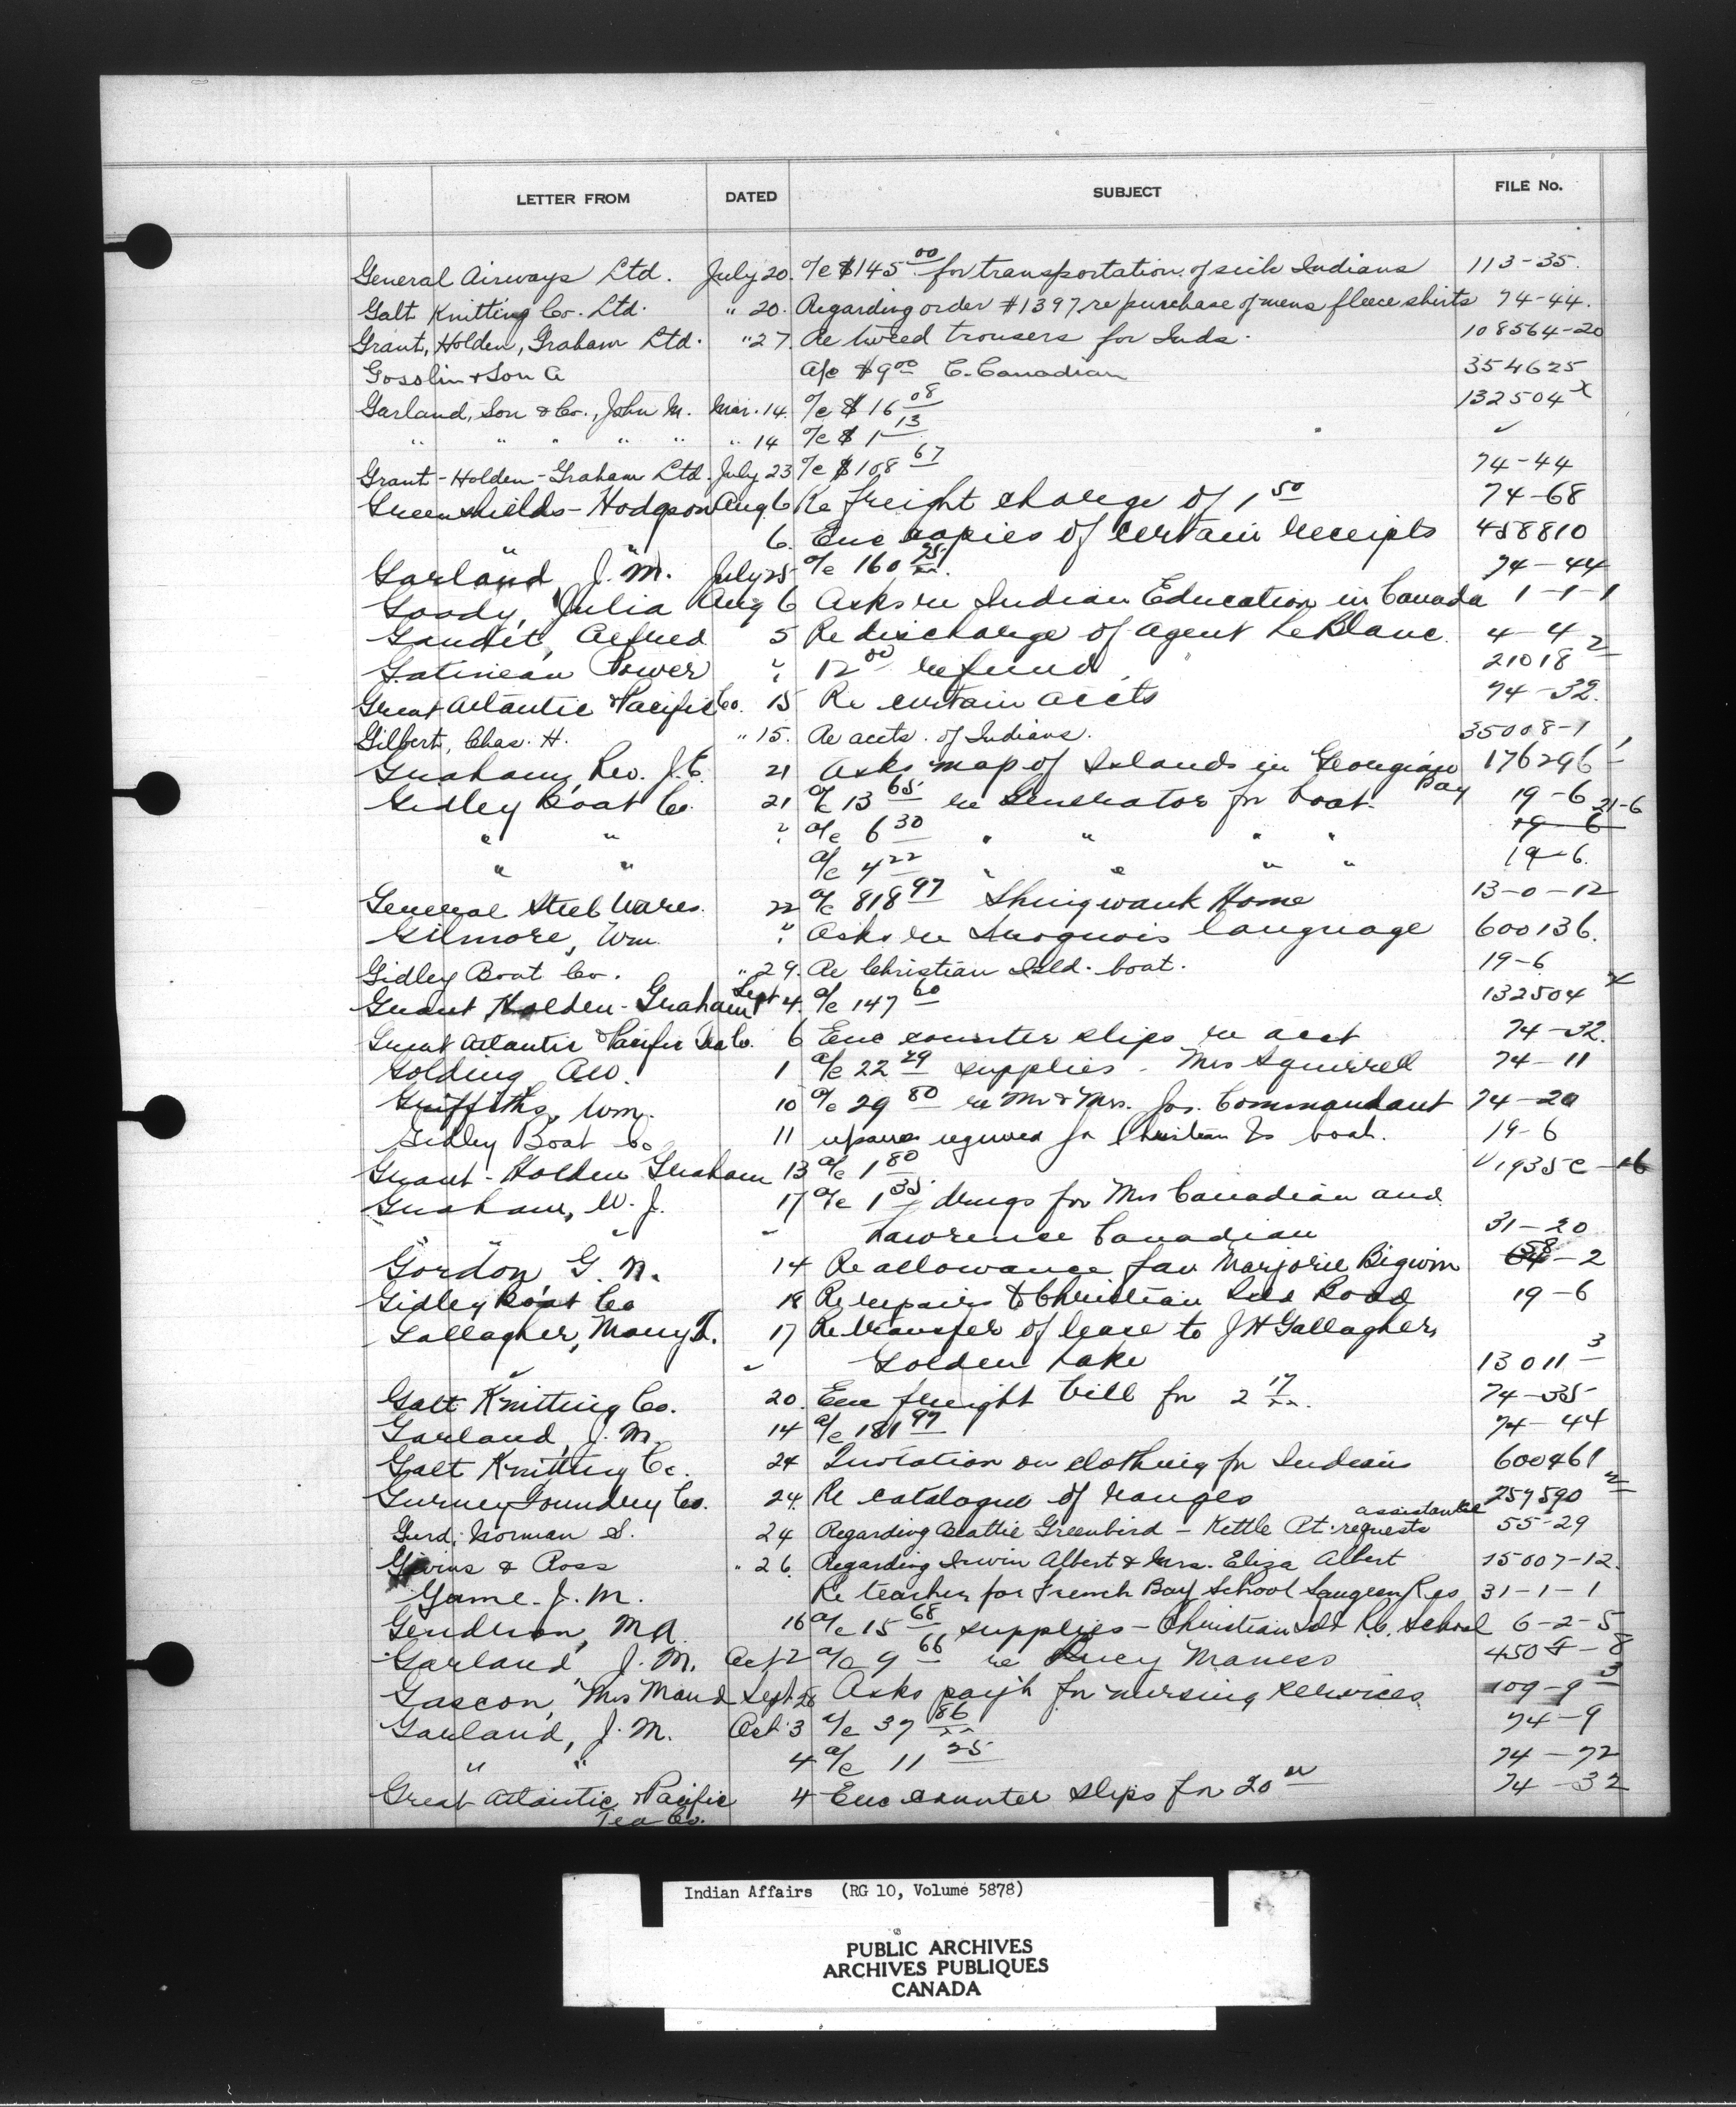 LETTER FROM DATED SUBJECT FILE No.
General Airways Ltd. July 20. a/c $145 00 for transportation of sick Indians 113-35.
Galt Knitting Co. Ltd. " 20. Regarding order #1397 re purchase of mens fleece shirts 74-44.
Grant, Holden, Graham Ltd. " 27. Re tweed trousers for Inds. 108564-20
Gosslin & Son A a/c $9 00 C. Canadian 354625
Garland, Son & Co., John M. Mar. 14. a/c $16 08 132504 x
" " " " " " 14 a/c $1 13 ✓
Grant-Holden-Graham Ltd. July 23 a/c $108 67 74-44
Greenshields-Hodgson Aug 6 Re freight charge of 1 50 74-68
" " 6. Enc copies of certain receipts 458810
Garland, J. M. July 25 a/c 160 25 74-44
Goody, Julia Aug 6 Asks re Indian Education in Canada 1-1-1
Gaudit, Alfred 5 Re discharge of agent LeBlanc. 4-4
Gatineau Power " 12 00 refund 21018 2
Great Atlantic & Pacific Co. 15 Re certain accts 74-32.
Gilbert, Chas. H. " 15. Re accts. of Indians. 35008-1
Graham, Rev. J. E. 21 Asks map of Islands in Georgian Bay 176296 1
Gidley Boat Co. 21 a/c 13 65 re Generator for boat. 19-6
" " " a/c 6 30 " " " " 19-6 21-6
" " a/c 4 22 " " " " 19-6.
General Steel Wares. 22 a/c 818 97 Shingwauk Home 13-0-12
Gilmore, Wm. " Asks re Iroquois language 600136.
Gidley Boat Co. " 29. Re Christian Isld. boat. 19-6
Grant Holden-Graham Sept 4. a/c 147 60 132504 x
Great Atlantic & Pacific Tea Co. 6 Enc counter slips re acct 74-32.
Golding, A.W. 1 a/c 22 29 supplies - Mrs Squirrell 74-11
Griffiths, Wm. 10 a/c 29 80 re Mr & Mrs. Jos. Commandant 74-20
Gidley Boat Co 11 repairs required for Christian Is boat. 19-6
Grant-Holden Graham 13 a/c 1 80 1935C-16
Graham, W. J. 17 a/c 1 35 drugs for Mrs Canadian and
" " " Lawrence Canadian 31-20
Gordon, G. N. 14 Re allowance for Marjorie Bigwin 58-2
Gidley Boat Co 18 Re repairs to Christian Isld Road 19-6
Gallagher, Mary L. 17 Re transfer of lease to J H Gallagher,
" " Golden Lake 13011 3
Galt Knitting Co. 20. Enc freight bill for 2 17 74-35
Garland, J. M. 14 a/c 181 97 74-44
Galt Knitting Co. 24 Quotation on clothing for Indians 600461
Gurney Foundry Co. 24. Re catalogue of ranges 259590 2
Gurd, Norman S. 24 Regarding Beattie Greenbird - Kettle Pt. requests assistance 55-29
Givins & Ross " 26. Regarding Irwin Albert & Mrs. Eliza Albert 15007-12.
Game. J. M. Re teacher for French Bay School Saugeen Res 31-1-1
Gendron, M A. 16 a/c 15 68 supplies - Christian Isld R.C. School 6-2-5
Garland, J. M. Oct 2 a/c 9 66 re Lucy Maness 450 -8
Gascon, Mrs Maud Sept 28 Asks pay't for nursing services 109-9 3
Garland, J. M. Oct 3 a/c 37 86 74-9
" " 4 a/c 11 25 74-72
Great Atlantic & Pacific 4 Enc counter slips for 20 74-32
Tea Co.
Indian Affairs (RG 10, Volume 5878)
PUBLIC ARCHIVES
ARCHIVES PUBLIQUES
CANADA